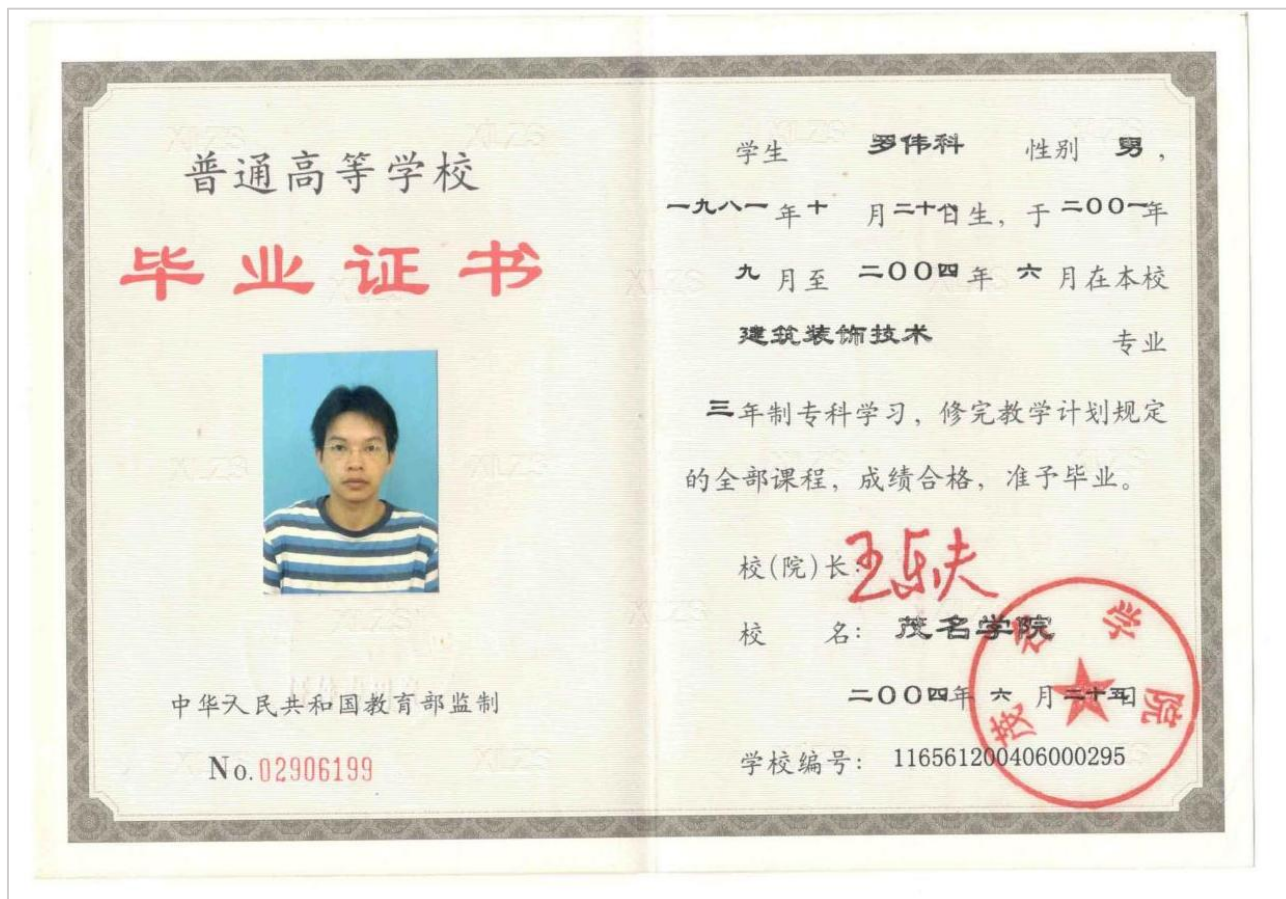 普通高等学校
毕业证书
中华人民共和国教育部监制
No.02906199
学生 罗伟科 性别 男,
一九八一年十 月二十 日生, 于二〇〇一年
九月至 二〇〇四年 六月在本校
建筑装饰技术 专业
三年制专科学习, 修完教学计划规定
的全部课程, 成绩合格, 准予毕业。
校(院)长: 王乐夫
校 名: 茂名学院
二〇〇四年 六月二十五日
学校编号: 116561200406000295
茂名学院